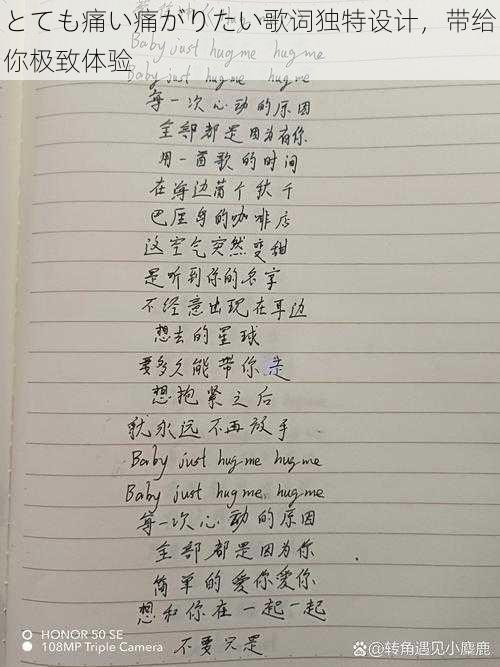 とても痛い痛がりたい歌词独特设计，带给
你极致体验
Baby just hug me hug me
Baby just hug me hug me
每一次心动的原因
全部都是因为有你
用一首歌的时间
在海边荡个秋千
巴厘岛的咖啡店
这空气突然变甜
是听到你的名字
不经意出现在耳边
想去的星球
要多久能带你走
想抱紧之后
就永远不再放手
Baby just hug me hug me
Baby just hug me hug me
每一次心动的原因
全部都是因为你
简单的爱你爱你
想和你在一起一起
不要只是
HONOR 50 SE
108MP Triple Camera
@转角遇见小麋鹿